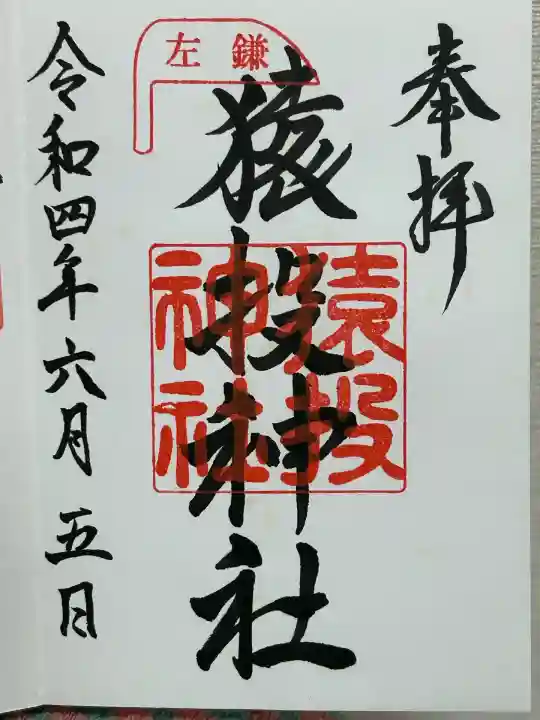 奉拝
左鎌
猿投神社
猿投神社
令和四年六月五日